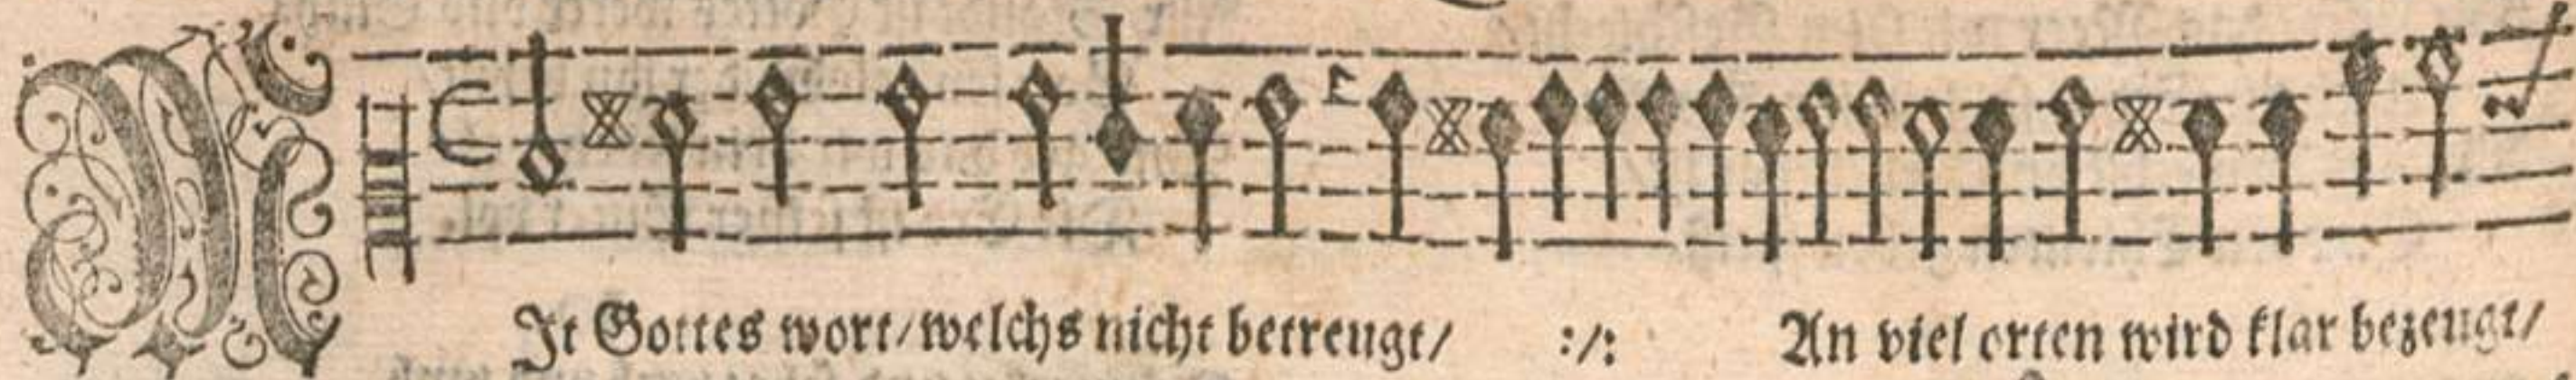 MIt Gottes wort/welchs nicht betreugt/ :/: An viel orten wird klar bezeugt/